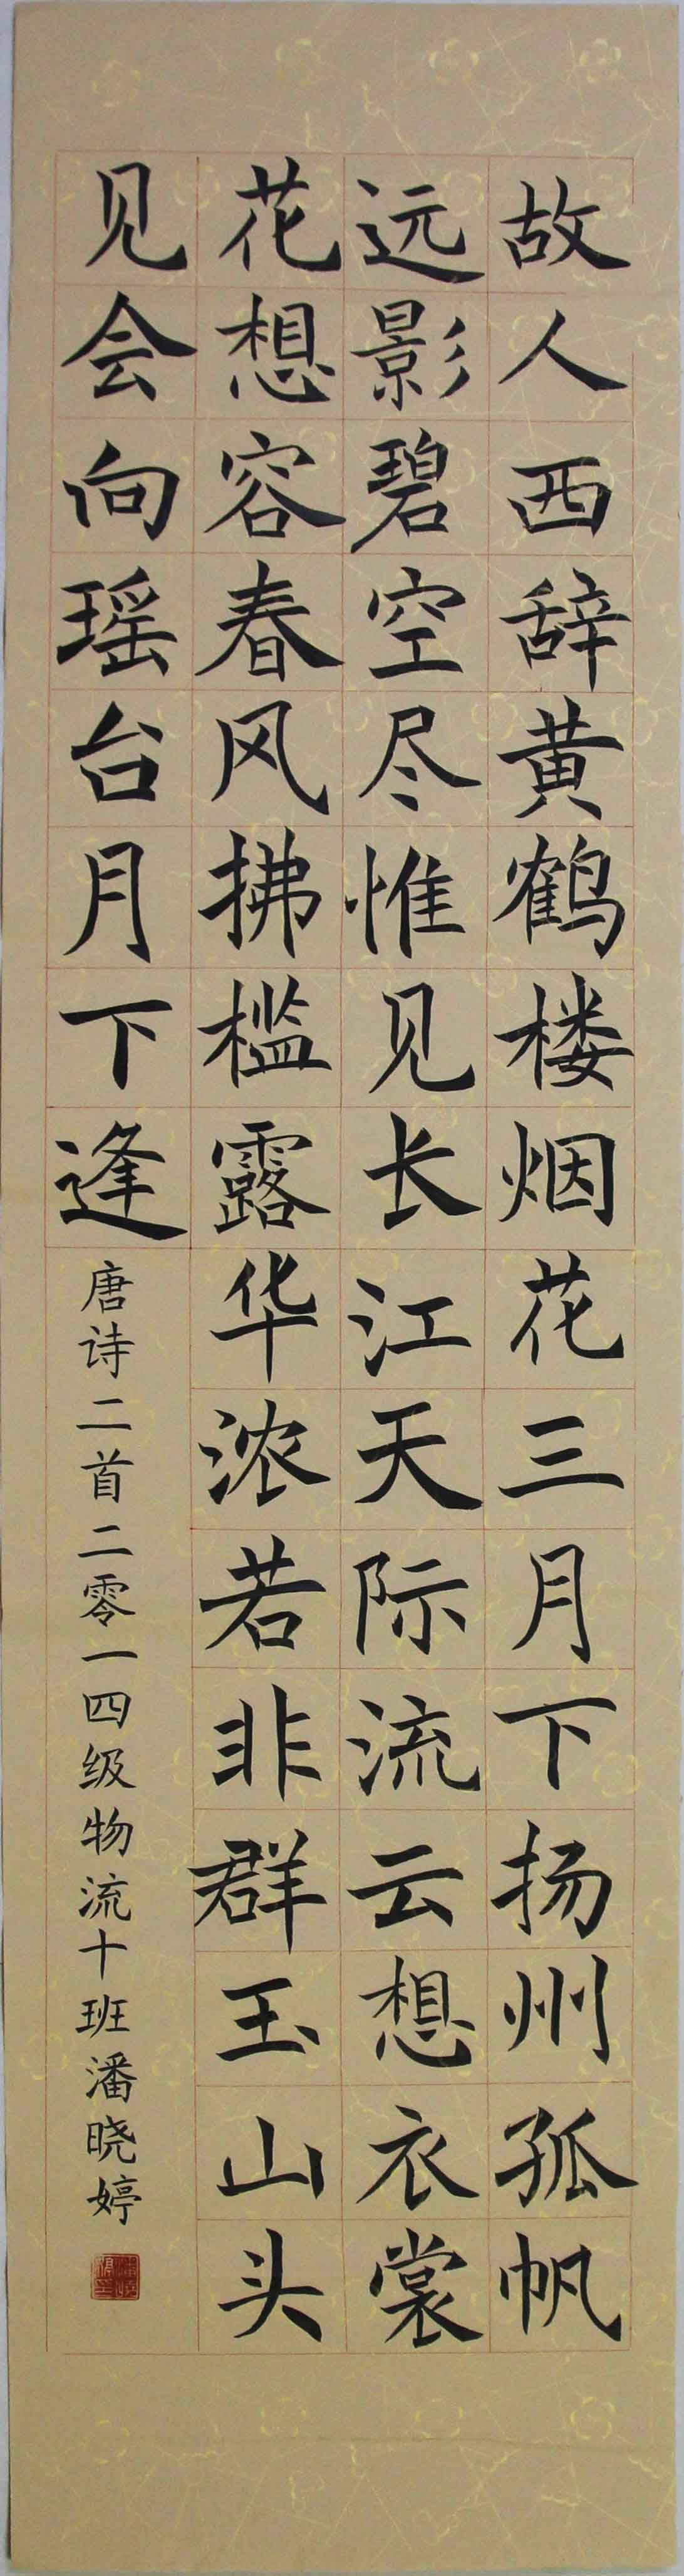 故人西辞黄鹤楼烟花三月下扬州孤帆
远影碧空尽惟见长江天际流云想衣裳
花想容春风拂槛露华浓若非群玉山头
见会向瑶台月下逢
唐诗二首二零一四级物流十班潘晓婷